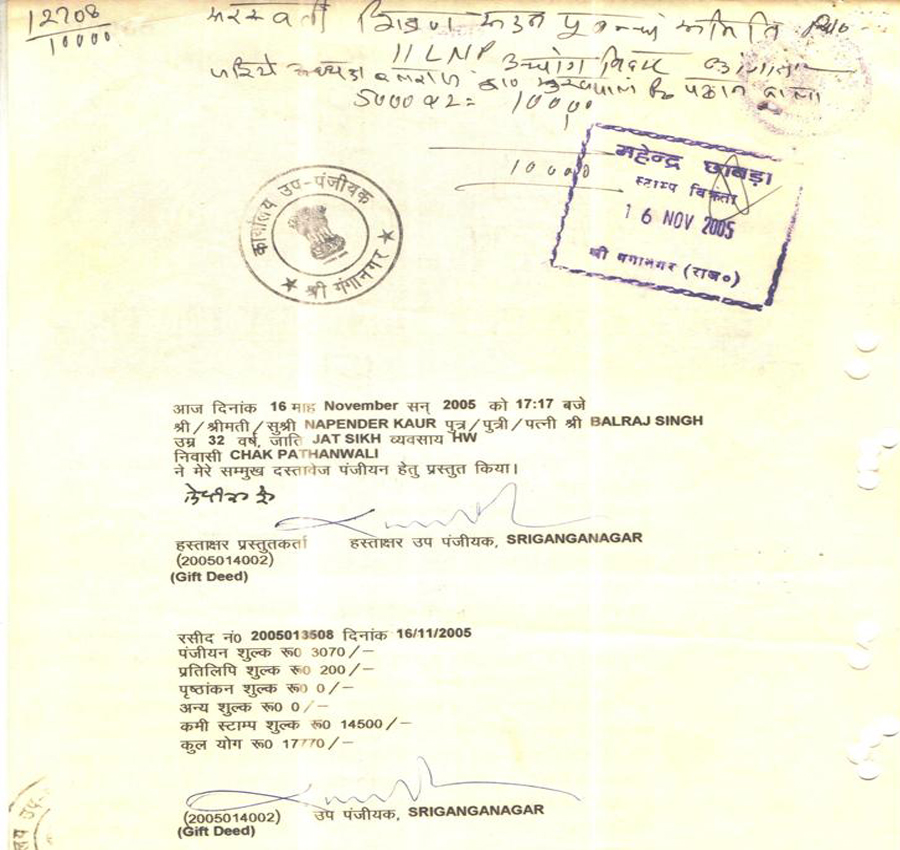 12708
10000
शिक्षण
11 LNP उद्योग विहार
5000 x 2 = 10000
10000
कार्यालय उप-पंजीयक
श्री गंगानगर
महेन्द्र छाबड़ा
स्टाम्प विक्रेता
16 NOV 2005
श्री गंगानगर (राज०)
आज दिनांक 16 माह November सन् 2005 को 17:17 बजे
श्री/श्रीमती/सुश्री NAPENDER KAUR पुत्र/पुत्री/पत्नी श्री BALRAJ SINGH
उम्र 32 वर्ष, जाति JAT SIKH व्यवसाय HW
निवासी CHAK PATHANWALI
ने मेरे सम्मुख दस्तावेज पंजीयन हेतु प्रस्तुत किया।
हस्ताक्षर प्रस्तुतकर्ता हस्ताक्षर उप पंजीयक, SRIGANGANAGAR
(2005014002)
(Gift Deed)
रसीद नं0 2005013508 दिनांक 16/11/2005
पंजीयन शुल्क रू0 3070/-
प्रतिलिपि शुल्क रू0 200/-
पृष्ठांकन शुल्क रू0 0/-
अन्य शुल्क रू0 0/-
कमी स्टाम्प शुल्क रू0 14500/-
कुल योग रू0 17770/-
(2005014002) उप पंजीयक, SRIGANGANAGAR
(Gift Deed)